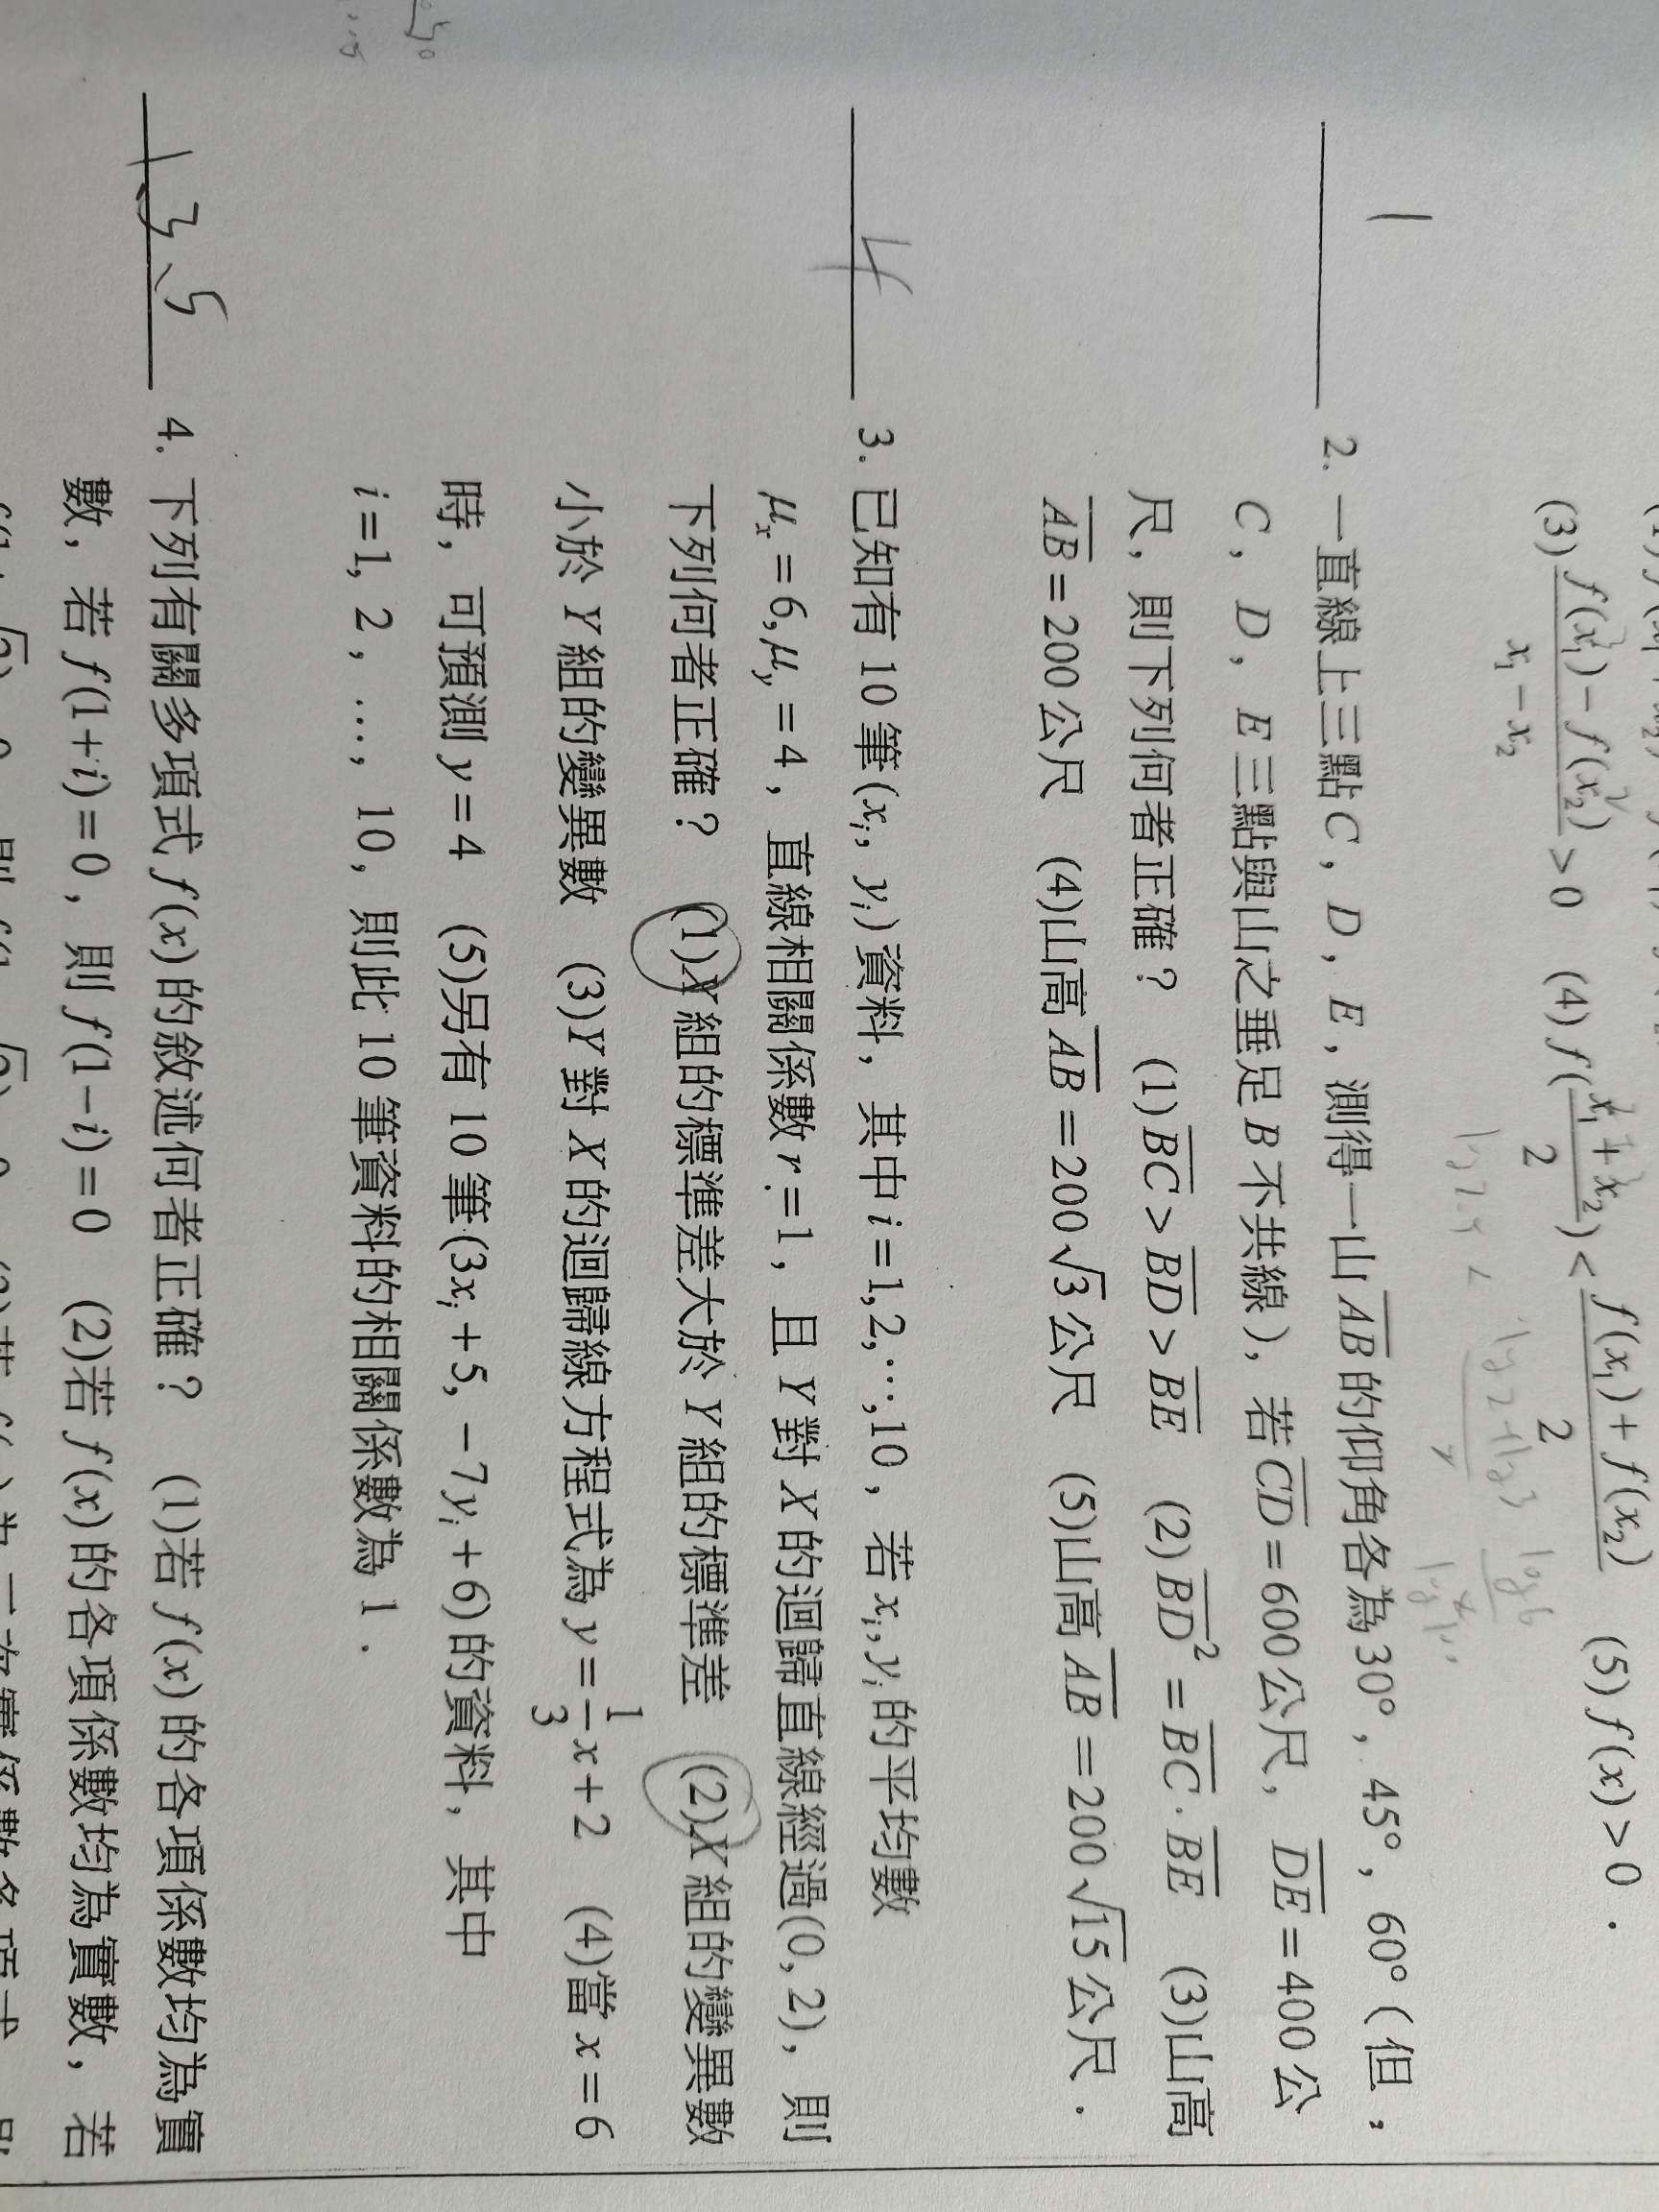 (3) \frac{f(x_1) - f(x_2)}{x_1 - x_2} > 0 (4) f(\frac{x_1 + x_2}{2}) < \frac{f(x_1) + f(x_2)}{2} (5) f(x) > 0．
1
2. 一直線上三點 C，D，E，測得一山 \overline{AB} 的仰角各為 30°，45°，60°（但，
C，D，E 三點與山之垂足 B 不共線），若 \overline{CD} = 600 公尺，\overline{DE} = 400 公
尺，則下列何者正確？ (1) \overline{BC} > \overline{BD} > \overline{BE} (2) \overline{BD}^2 = \overline{BC} · \overline{BE} (3)山高
\overline{AB} = 200 公尺 (4)山高 \overline{AB} = 200\sqrt{3} 公尺 (5)山高 \overline{AB} = 200\sqrt{15} 公尺．
4
3. 已知有 10 筆 (x_i, y_i) 資料，其中 i = 1,2,⋯,10，若 x_i, y_i 的平均數
μ_x = 6, μ_y = 4，直線相關係數 r = 1，且 Y 對 X 的迴歸直線經過 (0, 2)，則
下列何者正確？ (1) X 組的標準差大於 Y 組的標準差 (2) X 組的變異數
小於 Y 組的變異數 (3) Y 對 X 的迴歸線方程式為 y = \frac{1}{3}x + 2 (4)當 x = 6
時，可預測 y = 4 (5)另有 10 筆 (3x_i + 5, －7y_i + 6) 的資料，其中
i = 1, 2, ⋯, 10，則此 10 筆資料的相關係數為 1．
1,3,5
4. 下列有關多項式 f(x) 的敘述何者正確？ (1)若 f(x) 的各項係數均為實
數，若 f(1 + i) = 0，則 f(1 － i) = 0 (2)若 f(x) 的各項係數均為實數，若